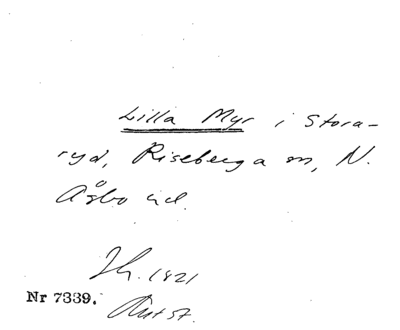 Lilla Myr i Stora-
ryd, Riseberga sn, N.
Åsbo hd.
1821
Nr 7339.